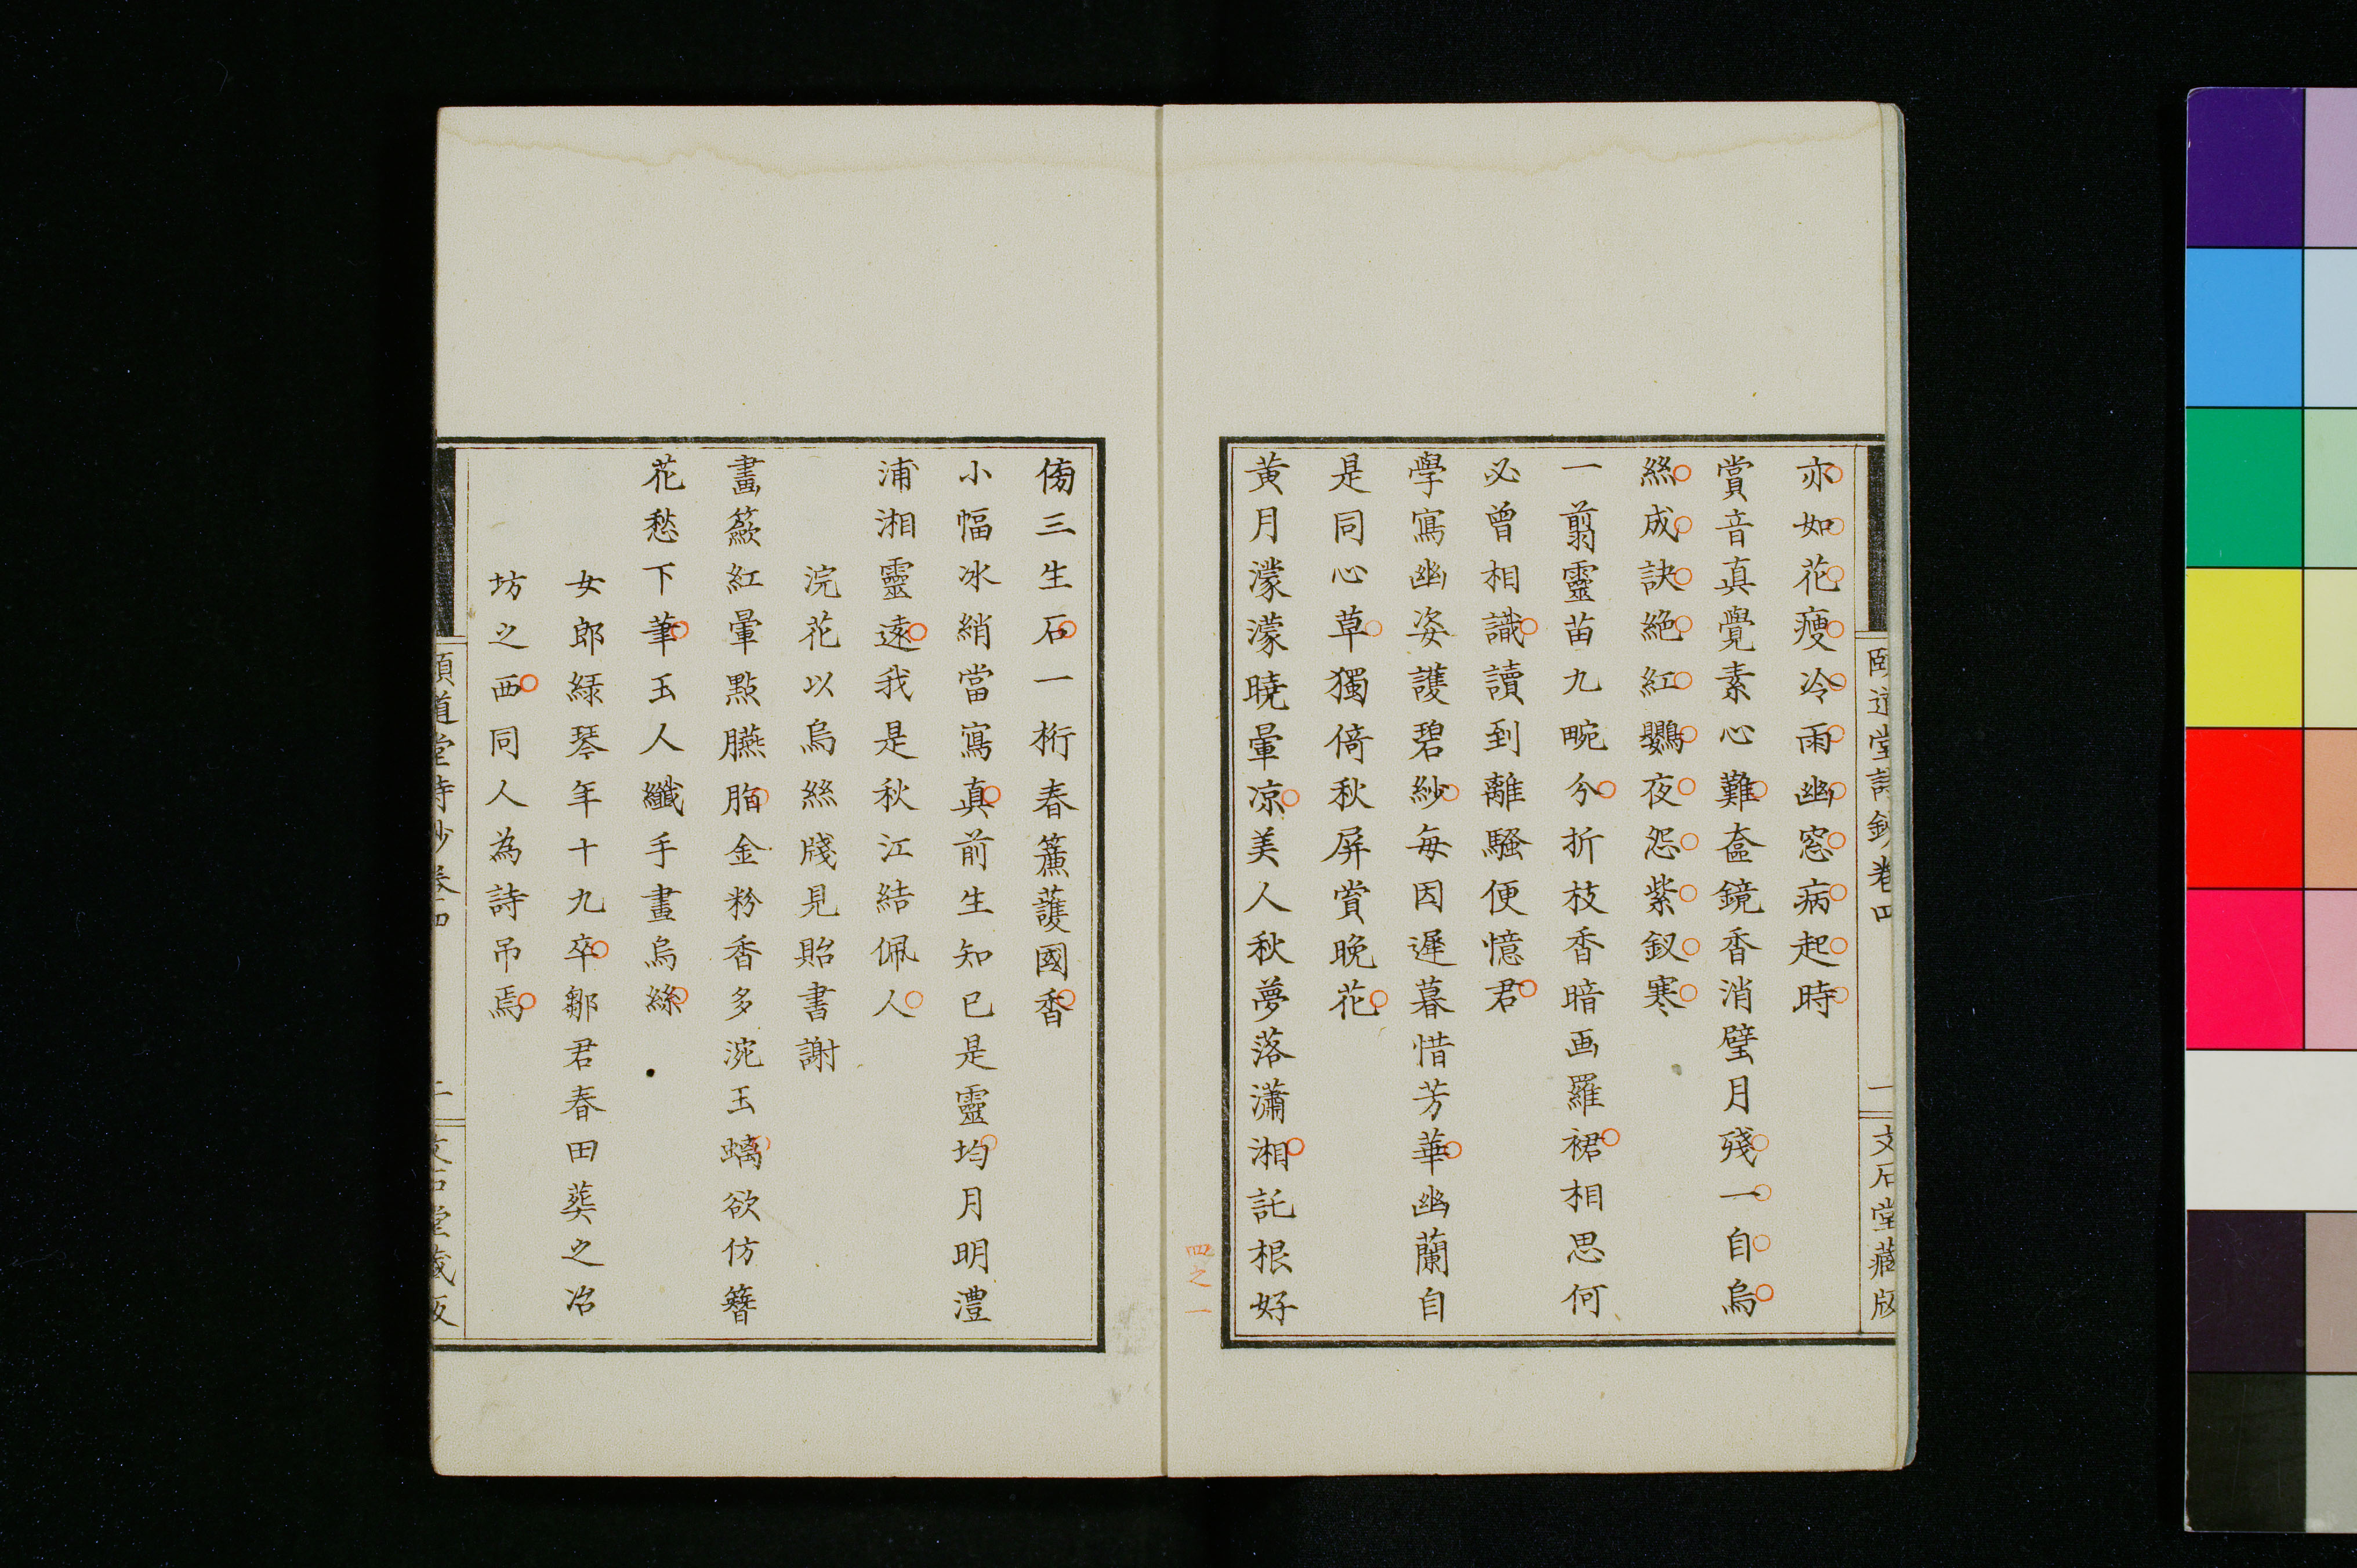 頤道堂詩鈔卷四
一
文石堂藏版
亦如花瘦冷雨幽窓病起時
賞音真覺素心難奩鏡香消璧月殘一自烏
絲成訣絶紅鸚夜怨紫釵寒
一翦靈苗九畹分折枝香暗画羅裙相思何
必曾相識讀到離騷便憶君
學寫幽姿護碧紗每因遲暮惜芳華幽蘭自
是同心草獨倚秋屏賞晚花
黃月濛濛曉暈凉美人秋夢落瀟湘託根好
四之一
傍三生石一桁春簾護國香
小幅冰綃當寫真前生知已是靈均月明澧
浦湘靈遠我是秋江結佩人
浣花以烏絲牋見貽書謝
畫簌紅暈點臙脂金粉香多涴玉螭欲仿簪
花愁下筆玉人纖手畫烏絲
女郎綠琴年十九卒鄒君春田葬之冶
坊之西同人為詩吊焉
頤道堂詩鈔卷四
二
文石堂藏版